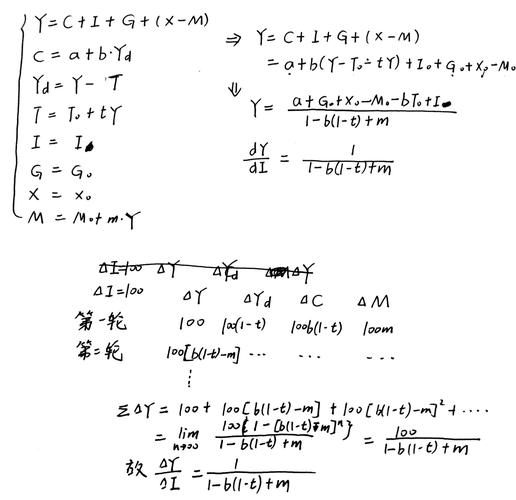 Y=C+I+G+(X-M)
C=a+b·Yd
Yd=Y-T
T=T₀+tY
I=I₀
G=G₀
X=X₀
M=M₀+m·Y
⇒ Y=C+I+G+(X-M)
=a+b(Y-T₀-tY)+I₀+G₀+X₀-M₀
⇓
Y=(a+G₀+X₀-M₀-bT₀+I)/(1-b(1-t)+m)
dY/dI=1/(1-b(1-t)+m)
ΔI=100 ΔY ΔYd ΔY
ΔI=100 ΔY ΔYd ΔC ΔM
第一轮 100 100(1-t) 100b(1-t) 100m
第二轮 100[b(1-t)-m] ··· ··· ···
⋮
ΣΔY=100+100[b(1-t)-m]+100[b(1-t)-m]²+····
=lim n→∞ 100{1-[b(1-t)-m]ⁿ}/(1-b(1-t)+m) = 100/(1-b(1-t)+m)
故 ΔY/ΔI=1/(1-b(1-t)+m)